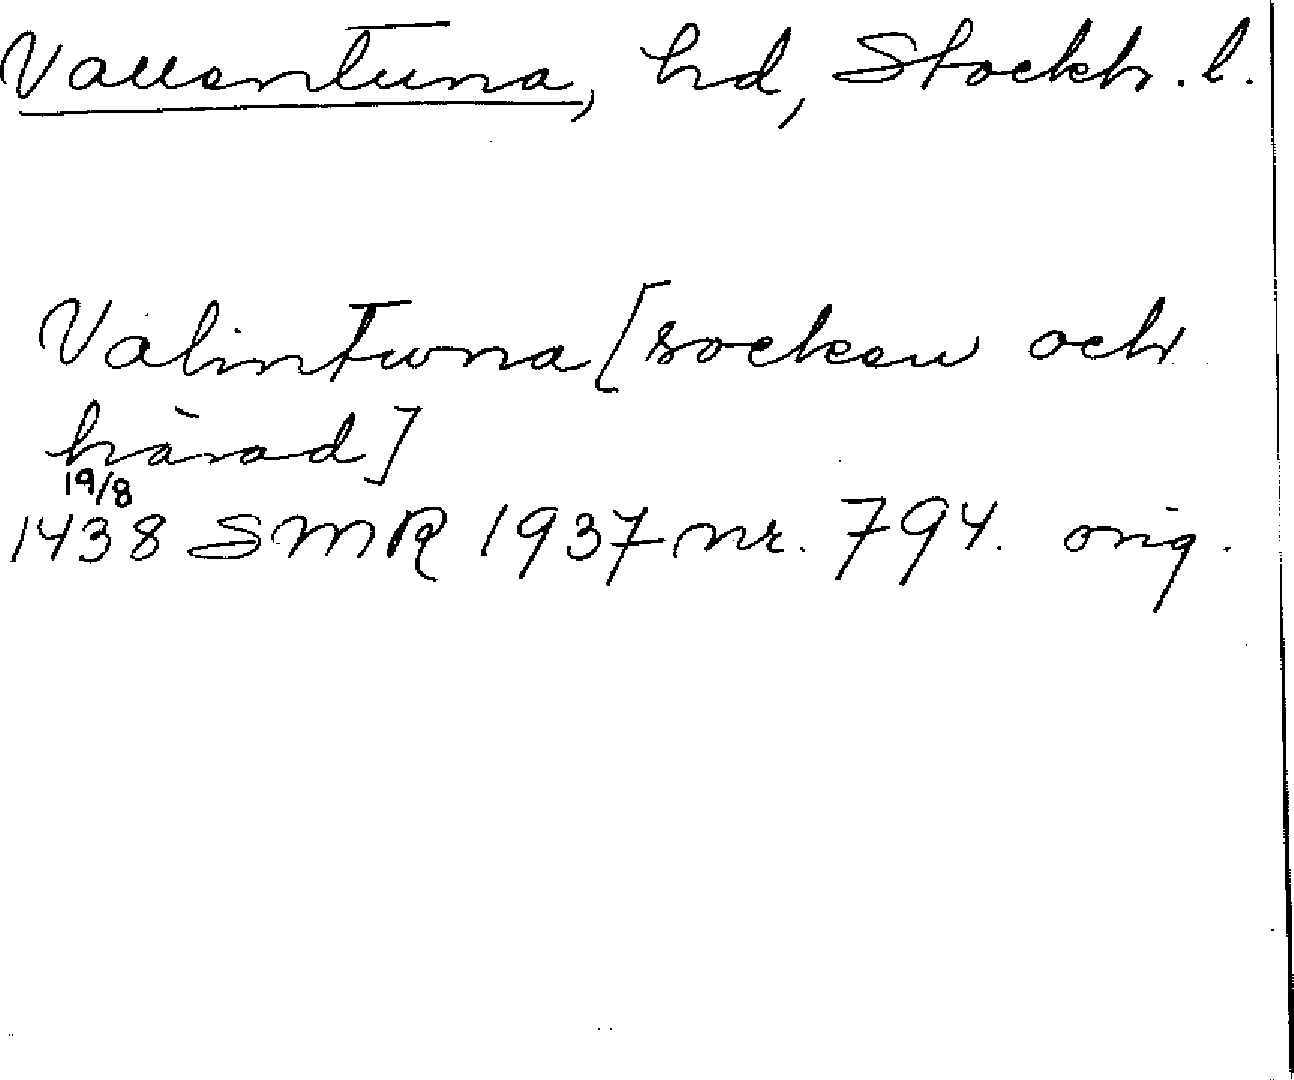 Vallentuna, hd, Stockh. l.
Valintuna [socken och
härad]
19/8
1438 SMR 1937 nr. 794. orig.